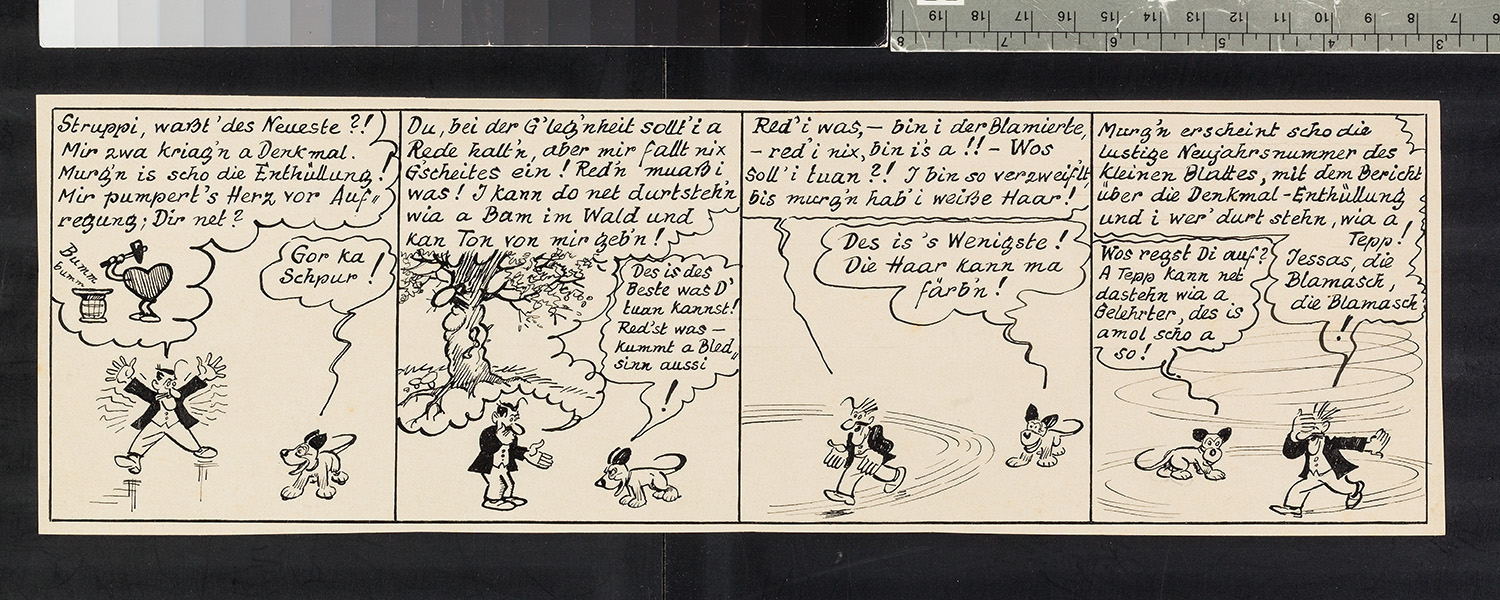 Struppi, waßt' des Neueste?!
Mir zwa kriag'n a Denkmal.
Murg'n is scho die Enthüllung!
Mir pumpert's Herz vor Auf„
regung; Dir net?
Bumm
bumm
Gor ka
Schpur!
Du, bei der G'leg'nheit sollt' i a
Rede halt'n, aber mir fallt nix
Gscheites ein! Red'n muaß i
was! I kann do net durtsteh'n
wia a Bam im Wald und
kan Ton von mir geb'n!
Des is des
Beste was D'
tuan kannst!
Red'st was —
kummt a Bled„
sinn aussi
!
Red' i was, — bin i der Blamierte,
— red' i nix, bin is a!! — Wos
soll' i tuan?! I bin so verzweifelt,
bis murg'n hab' i weiße Haar!
Des is 's Wenigste!
Die Haar kann ma
färb'n!
Murg'n erscheint scho die
lustige Neujahrsnummer des
kleinen Blattes, mit dem Bericht
über die Denkmal-Enthüllung
und i wer' durt stehn, wia a
Tepp!
Wos regst Di auf?
A Tepp kann net
dastehn wia a
Gelehrter, des is
amol scho a
so!
Jessas, die
Blamasch,
die Blamasch
!
19 18 17 16 15 14 13 12 11 10 9 8 7 6
8 7 6 5 4 3